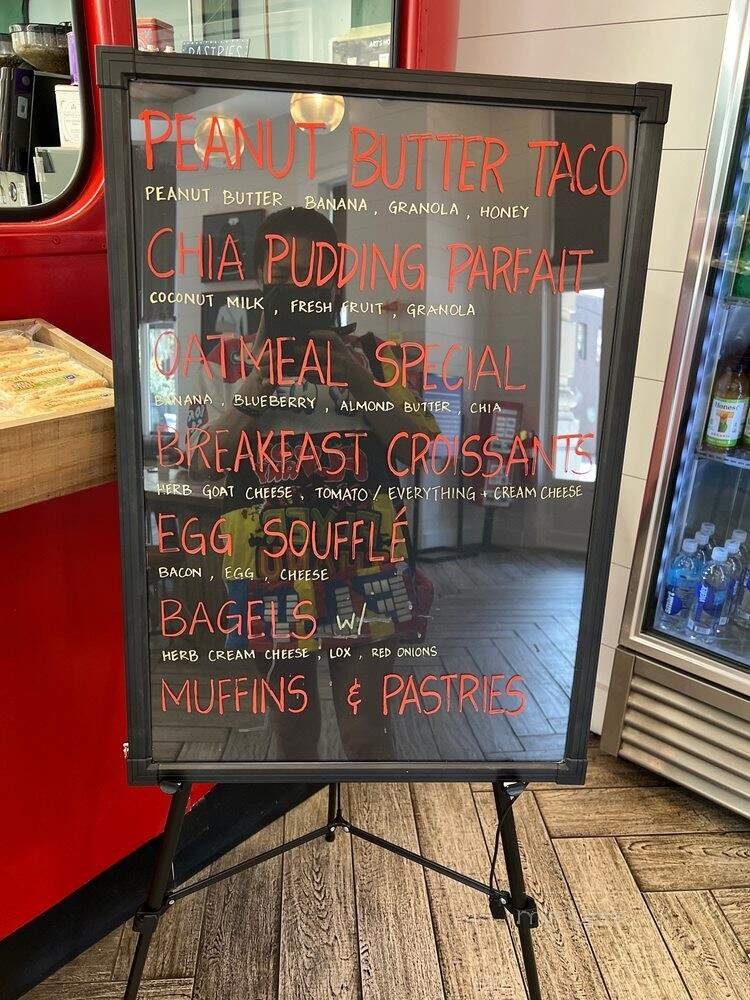 PASTRIES
PEANUT BUTTER TACO
PEANUT BUTTER , BANANA , GRANOLA , HONEY
CHIA PUDDING PARFAIT
COCONUT MILK , FRESH FRUIT , GRANOLA
OATMEAL SPECIAL
BANANA , BLUEBERRY , ALMOND BUTTER , CHIA
BREAKFAST CROISSANTS
HERB GOAT CHEESE , TOMATO / EVERYTHING + CREAM CHEESE
EGG SOUFFLÉ
BACON , EGG , CHEESE
BAGELS W/
HERB CREAM CHEESE , LOX , RED ONIONS
MUFFINS & PASTRIES